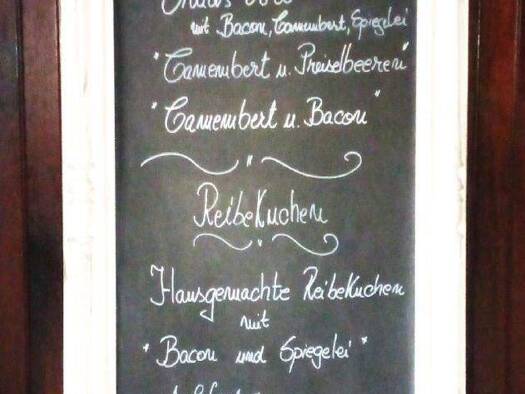 mit Bacon, Camembert, Spiegelei
"Camembert u. Preiselbeeren"
"Camembert u. Bacon"
ReibeKuchen
Hausgemachte ReibeKuchen
mit
"Bacon und Spiegelei"